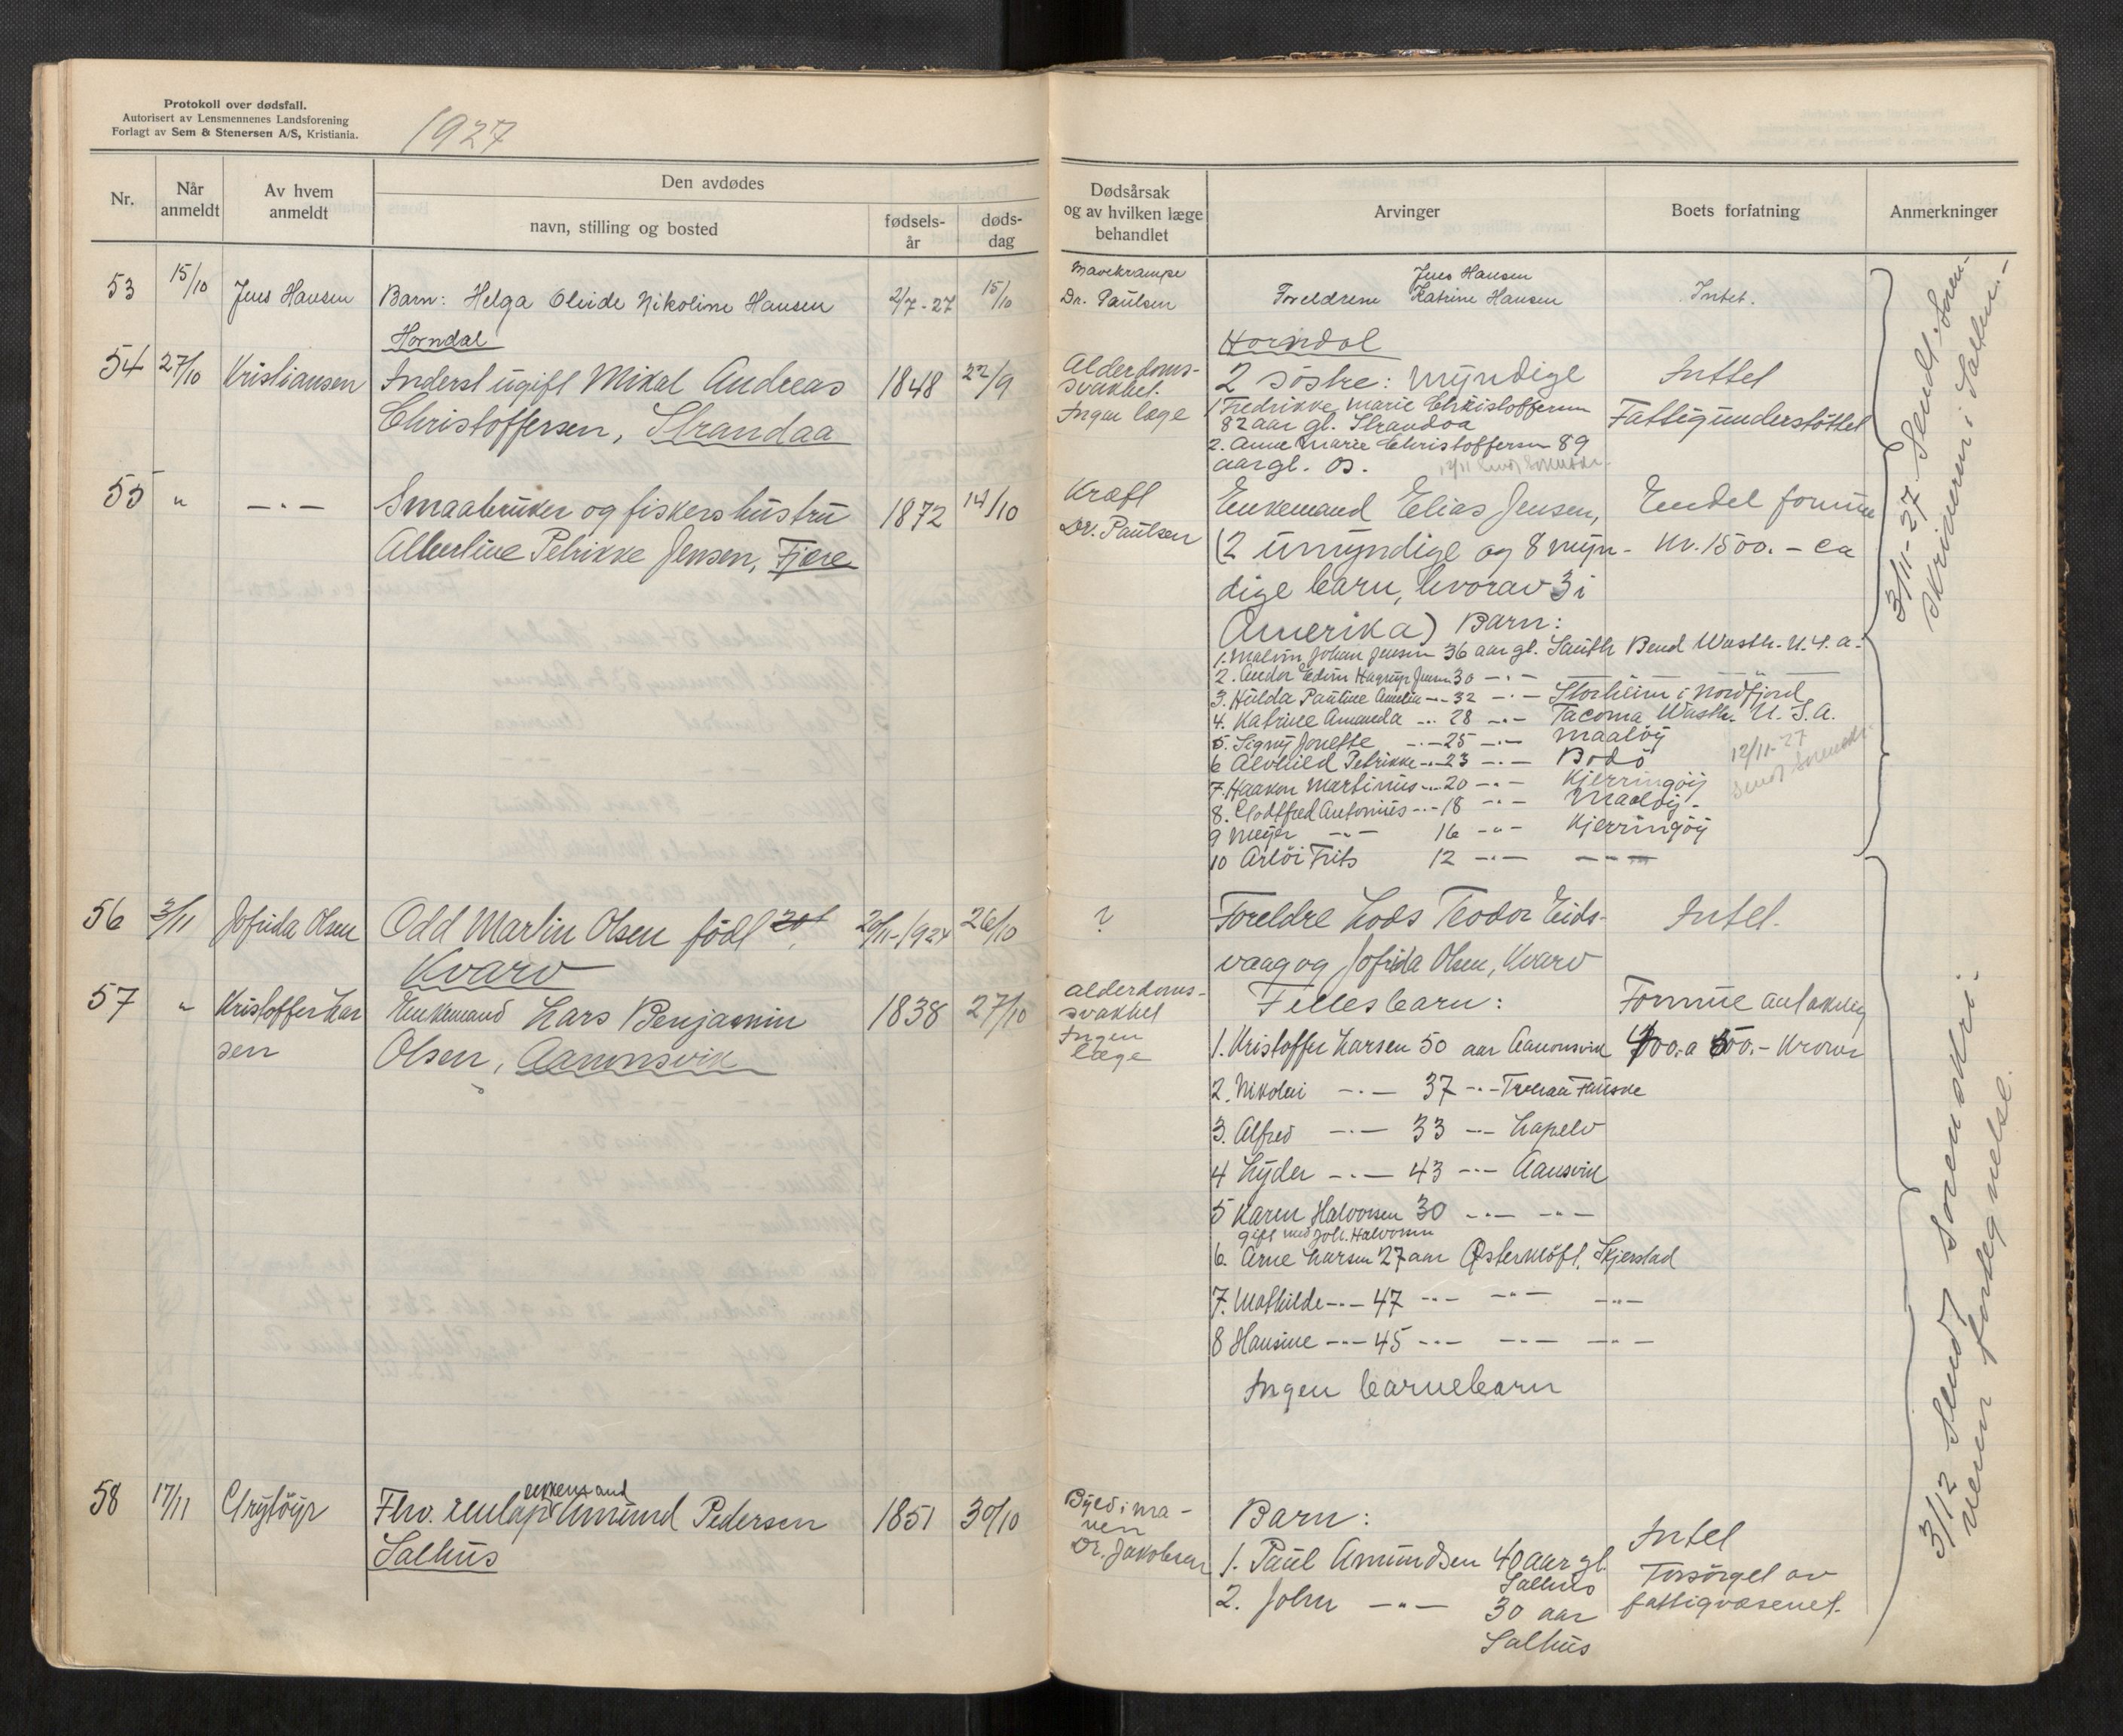 Protokoll over dødsfall.
Autorisert av Lensmennenes Landsforening
Forlagt av Sem & Stenersen A/S, Kristiania.
1927
Nr.
Når anmeldt
Av hvem anmeldt
Den avdødes
navn, stilling og bosted
fødsels-år
døds-dag
Dødsårsak og av hvilken læge behandlet
Arvinger
Boets forfatning
Anmerkninger
53 15/10 Jens Hansen Barn: Helga Olvide Nikoline Hansen 2/7-27 15/10
Horndal
Mavekrampe
Dr. Paulsen
Jens Hansen
Foreldrene Katrine Hansen
Horndal
Intet.
54 27/10 Kristiansen Inderst ugift Mikal Andreas 1848 22/9
Christoffersen, Strandaa
Alderdoms-
svakhet.
Ingen læge
2 søstre: myndige
1 Fredrikke Marie Christoffersen
82 aar gl. Strandaa
2. Anne Marie Christoffersen 89
aar gl. Os.
Inttet
Fattigunderstöttet
55 " -"- Smaabruker og fiskers hustru 1872 14/10
Albertine Petrikke Jensen, Fjære
Kræft
Dr. Paulsen
Enkemand Elias Jensen,
(2 umyndige og 8 myn-
dige barn, hvorav 3 i
Amerika) Barn:
1. Malvin Johan Jensen 36 aar gl. South Bend Wasth. U.S.a.
2. Andor Edvin Hagrup Jensen 30 -"-
3. Hulda Pauline Amelia -"- 32 -"- Storheim i Nordfjord
4. Katrine Amanda -"- 28 -"- Tacoma Wasth. U.S.A.
5. Signy Jonette -"- 25 -"- Maaløy
6 Alvhild Petrikke -"- 23 -"- Bodö
7. Haakon Martinius -"- 20 -"- Kjerringöy
8. Godtfred Antonius -"- 18 -"- Maaløy-
9 Meyer -"- 16 -"- Kjerringöy
10 Arlöi Frits 12 -"- -"-
Endel formue
kr. 1500.- ca
12/11-27
56 3/11 Jofrida Olsen Odd Martin Olsen født 20/11-1924 26/10
Kvarv
?
Foreldre Lods Teodor Eids-
vaag og Jofrida Olsen, Kvarv
Intet.
57 " Kristoffer Lar
sen
Enkemand Lars Benjamin 1838 27/10
Olsen, Aamnsvik
alderdoms-
svakhet
Ingen
læge
Fellesbarn:
1. Kristoffer Larsen 50 aar
2. Nikolai -"- 37 -"- Fauske
3. Alfred -"- 33 -"- Lapelv
4 Lyder -"- 43 -"- Aansvik
5 Karen Halvorsen 30 -"- -"-
gift med Joh. Halvorsen
6. Arne Larsen 27 aar Østerkløft, Skjerstad
7. Mathilde -"- 47 -"- -"- -"-
8 Hansine -"- 45 -"- -"- -"-
Ingen barnebarn
Formue antakelig
400.- a 500.- kroner
58 17/11 Grytöyr Fhv. enkemand Amund Pedersen 1851 30/10
Salhus
Byld i ma-
ven
Dr. Jakobsen
Barn:
1. Paul Amundsen 40 aar gl.
Salhus
2. John -"- 30 aar
Salhus
Intet
Forsörget av
fattigvæsenet.
3/11-27 Sendt Soren-
skriveren i Salten.-
3/12 Sendt Sorenskri-
veren fortegnelse.